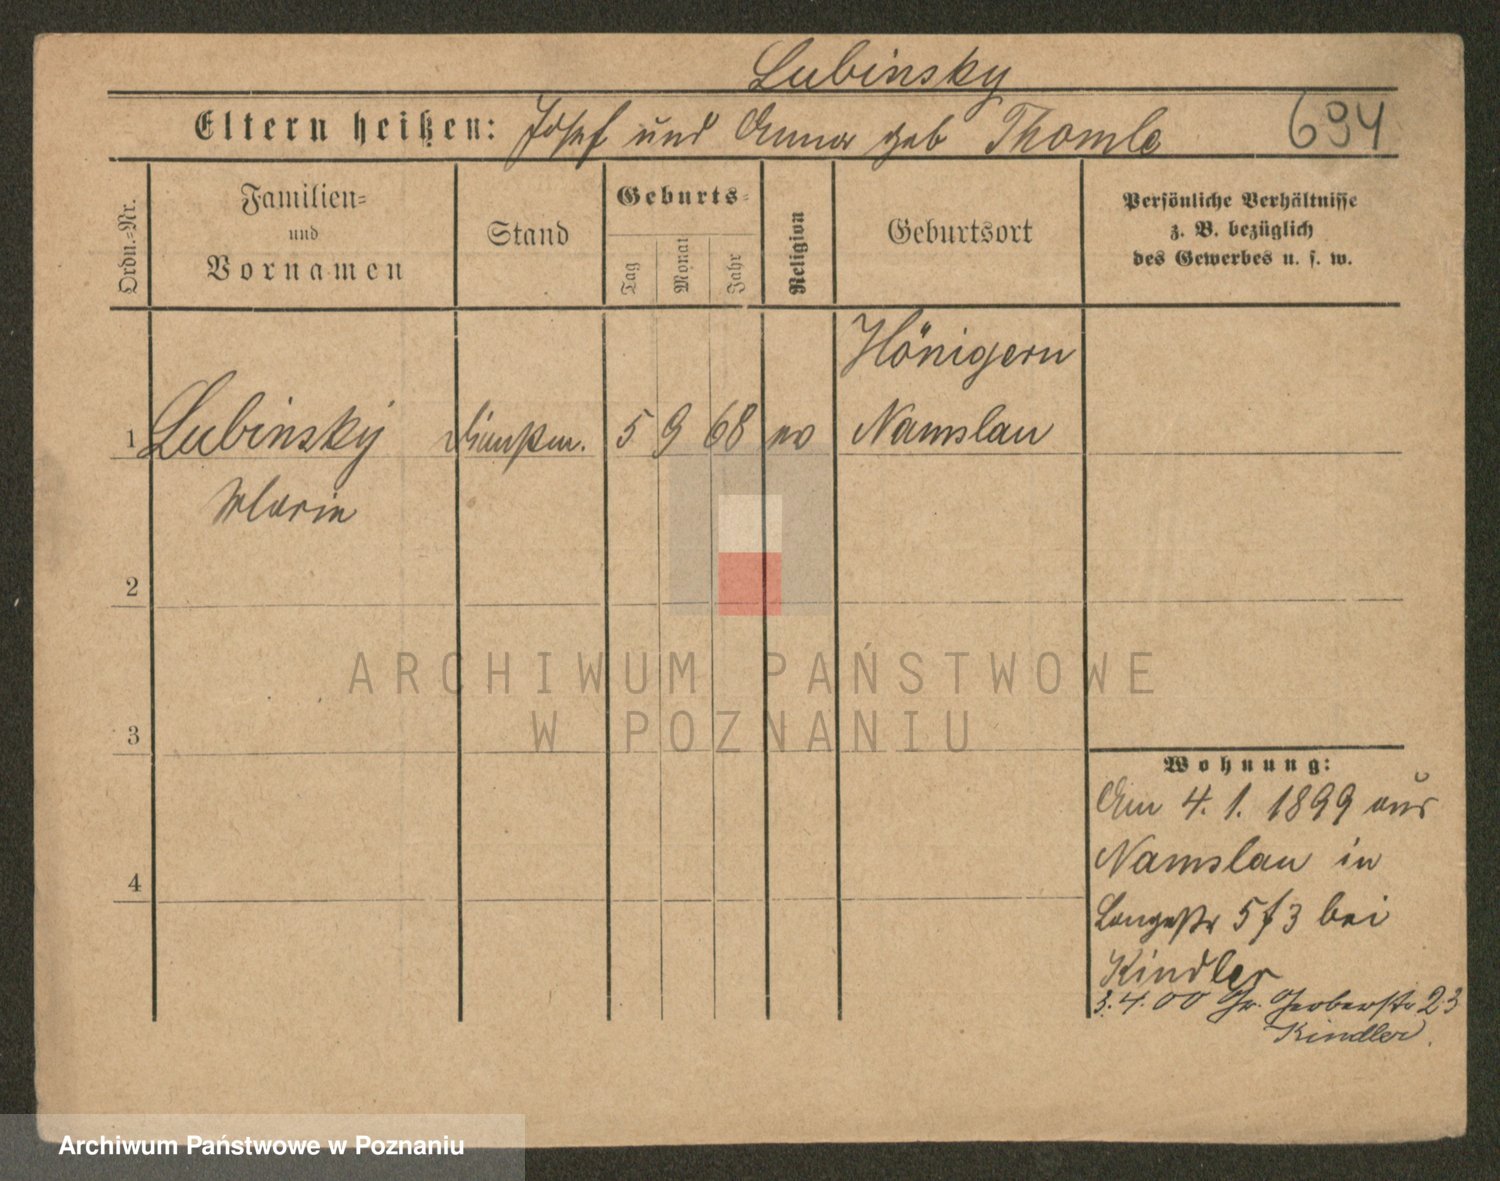 Lubinsky
Eltern heißen: Josef und Anna geb Thomle
694
Ordn.-Nr.
Familien-
und
Vornamen
Stand
Geburts-
Tag
Monat
Jahr
Religion
Geburtsort
Persönliche Verhältnisse
z. B. bezüglich
des Gewerbes u. s. w.
1 Lubinsky Dienstm. 5 9 68 ev Hönigern
Namslau
Marie
2
3
4
ARCHIWUM PAŃSTWOWE
W POZNANIU
Wohnung:
Am 4. 1. 1899 aus
Namslau in
Langestr 5 f 3 bei
Kindler
3. 4. 00 Gr. Gerberstr 23
Kindler.
Archiwum Państwowe w Poznaniu